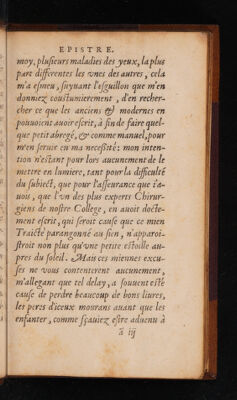 EPISTRE.
moy, plusieurs maladies des yeux, la plus
part differentes les vnes des autres, cela
m'a esmeu, suyuant l'esguillon que m'en
donniez coustumierement, d'en recher-
cher ce que les anciens & modernes en
pouuoient auoir escrit, à fin de faire quel-
que petit abregé, & comme manuel, pour
m'en seruir en ma necessité: mon inten-
tion n'estant pour lors aucunement de le
mettre en lumiere, tant pour la difficulté
du subiect, que pour l'asseurance que i'a-
uois, que l'vn des plus experts Chirur-
giens de nostre College, en auoit docte-
ment escrit, qui seroit cause que ce mien
Traicté parangonné au sien, n'apparoi-
stroit non plus qu'vne petite estoille au-
pres du soleil. Mais ces miennes excu-
ses ne vous contenterent aucunement,
m'allegant que tel delay, a souuent esté
cause de perdre beaucoup de bons liures,
les peres d'iceux mourans auant que les
enfanter, comme sçauiez estre aduenu à
ã iij